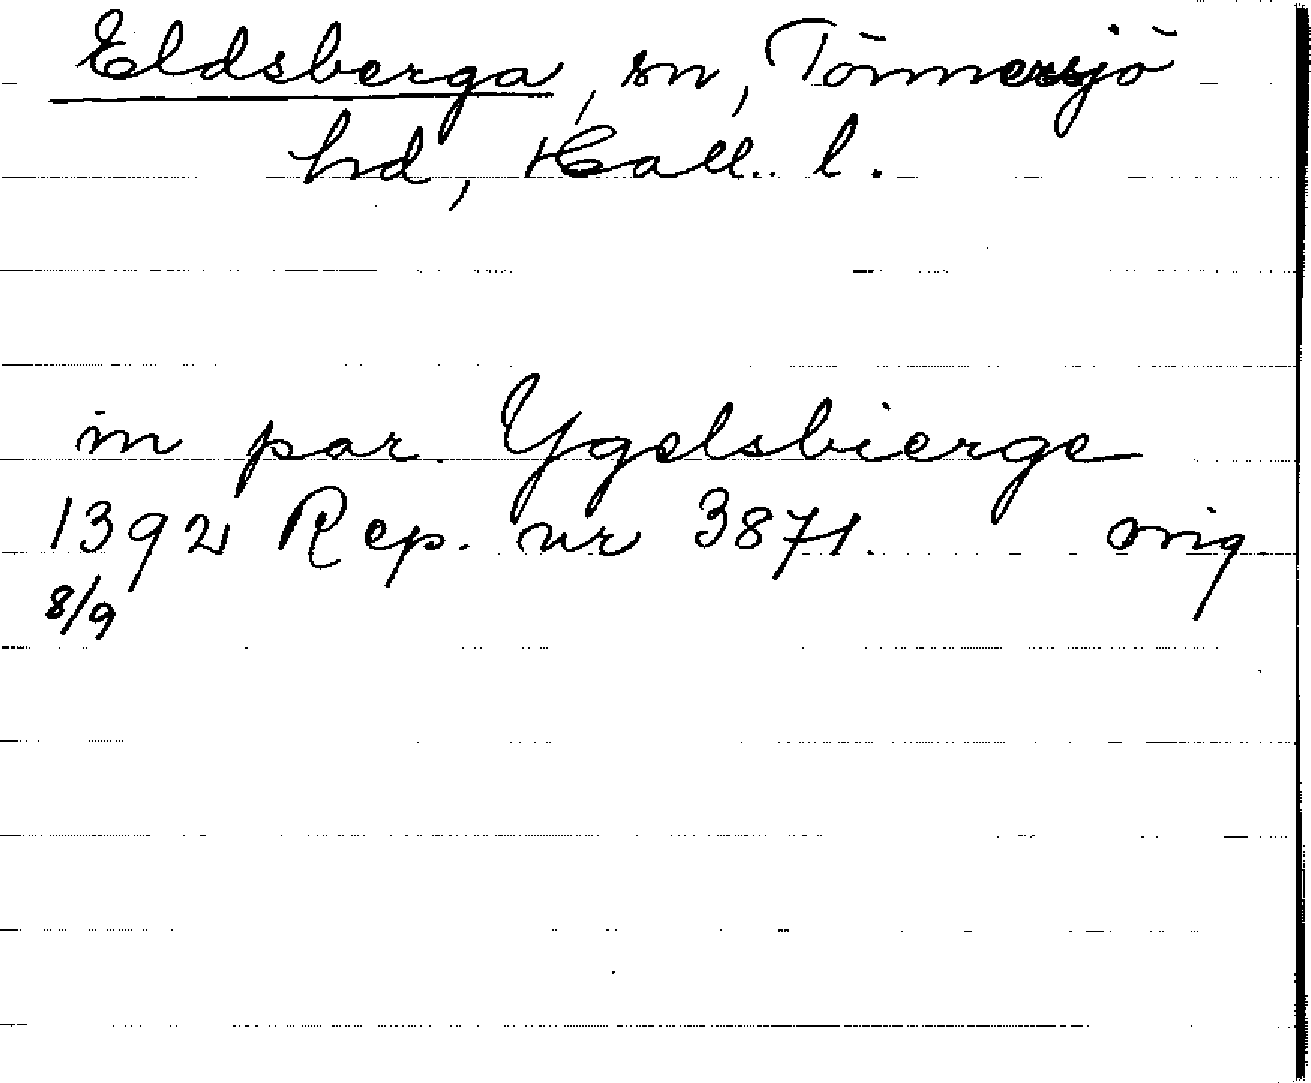 Eldsberga, sn, Tönnersjö
hd, Hall. l.
in par. Ygelsbierge
1392 Rep. nr 3871. orig
8/9